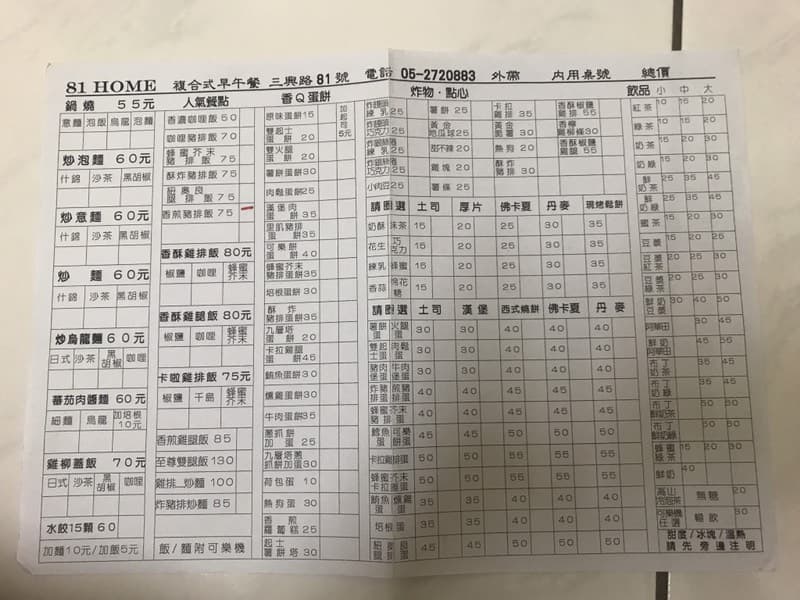 81 HOME 複合式早午餐 三興路81號 電話 05-2720883 外帶 內用桌號 總價
鍋燒 55元
意麵 泡飯 烏龍 泡麵
炒泡麵 60元
什錦 沙茶 黑胡椒
炒意麵 60元
什錦 沙茶 黑胡椒
炒麵 60元
什錦 沙茶 黑胡椒
炒烏龍麵 60元
日式 沙茶 黑胡椒 咖哩
蕃茄肉醬麵 60元
細麵 烏龍 加培根10元
雞柳蓋飯 70元
日式 沙茶 黑胡椒 咖哩
水餃15顆 60
加麵10元/加飯5元
人氣餐點
香濃咖哩飯 50
咖哩豬排飯 70
蜂蜜芥末豬排飯 75
酥炸豬排飯 75
紐奧良腿排飯 75
香煎豬排飯 75
香酥雞排飯 80元
椒鹽 咖哩 蜂蜜芥末
香酥雞腿飯 80元
椒鹽 咖哩 蜂蜜芥末
卡啦雞排飯 75元
椒鹽 千島 蜂蜜芥末
香煎雞腿飯 85
至尊雙腿飯 130
雞排炒麵 100
炸豬排炒麵 85
飯/麵附可樂機
香Q蛋餅
加起司5元
原味蛋餅15
雙起士蛋餅 20
雙火腿蛋餅 20
薯餅蛋餅30
肉鬆蛋餅25
漢堡肉蛋餅 35
里肌豬排蛋餅35
可樂餅蛋餅 40
蜂蜜芥末豬排蛋餅35
培根蛋餅30
酥炸豬排蛋餅35
九層塔蛋餅 20
卡啦雞腿蛋餅 45
鮪魚蛋餅30
燻雞蛋餅30
牛肉蛋餅35
蔥抓餅加蛋 25
九層塔蔥抓餅加蛋30
荷包蛋 10
熱狗蛋 30
香煎蘿蔔糕 25
起士薯塔 30
炸物·點心
炸饅頭煉乳 25
炸饅頭巧克力 25
炸銀絲卷煉乳 25
炸銀絲卷巧克力 25
小肉豆 25
薯餅 25
黃金地瓜球 25
甜不辣 20
雞塊 20
薯條 25
卡拉雞排 35
黃金脆薯 30
熱狗 20
酥炸豬排 30
香酥椒鹽雞排 55
香檸雞柳條 30
香酥椒鹽雞腿 55
請圈選 土司 厚片 佛卡夏 丹麥 現烤鬆餅
奶酥 抹茶 15 20 25 30 35
花生 巧克力 15 20 25 30 35
煉乳 蜂蜜 15 20 25 30 35
香蒜 棉花糖 15 20 25 30 35
請圈選 土司 漢堡 西式燒餅 佛卡夏 丹麥
薯餅蛋 火腿蛋 30 30 40 40 40
雙起士蛋 肉鬆蛋 30 30 40 40 40
豬肉堡蛋 牛肉堡蛋 30 30 40 40 40
炸豬排蛋 煎豬排蛋 40 40 45 45 45
蜂蜜芥末豬排蛋 40 40 45 45 45
鱈魚蛋 可樂餅蛋 45 45 50 50 50
卡拉雞排蛋 50 50 55 55 55
蜂蜜芥末卡拉雞蛋 50 50 55 55 55
鮪魚蛋 燻雞蛋 35 35 40 40 40
培根蛋 35 35 40 40 40
紐奧良腿排蛋 45 45 50 50 50
飲品 小 中 大
紅茶 10 15 20
綠茶 10 15 20
奶茶 15 20 30
奶綠 15 20 30
鮮奶茶 35 45
鮮奶綠 35 45
蜜茶 15 20 30
豆漿 15 20 25
豆漿紅茶 20 25 30
豆漿綠茶 20 25 30
鮮奶豆漿 30 40 50
阿華田 35 45
鮮奶阿華田 45 56
布丁奶茶 35 45
布丁奶綠 35 45
布丁鮮奶茶 50 60
布丁鮮奶綠 50 50
蜂蜜綠茶 15 20 30
鮮奶 40
高山冷泡茶 無糖 20
可樂機任選 暢飲 30
甜度/冰塊/溫熱
請先旁邊注明